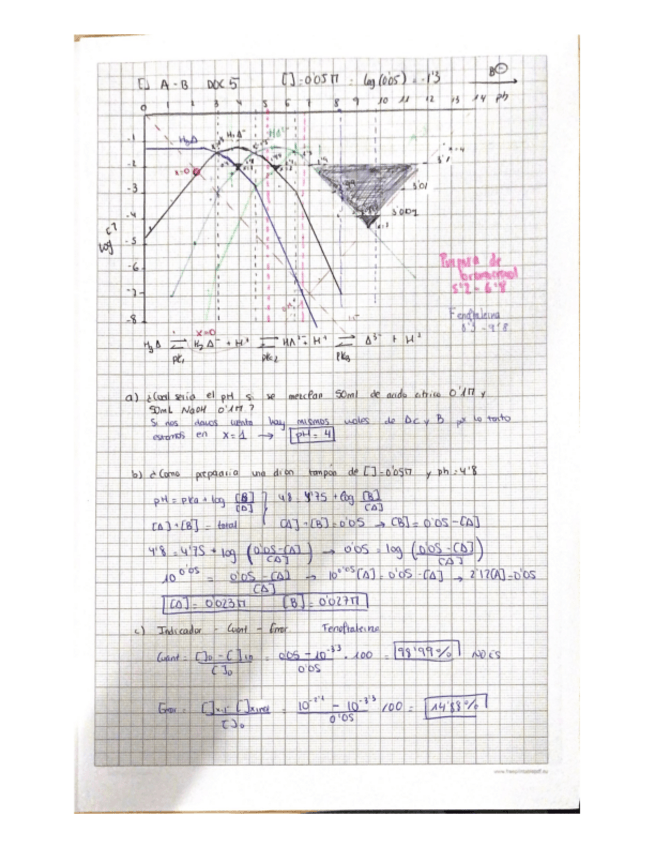 [] A-B DOC 5 []=0'05M log(0'05) = -1'3 B⊖
0 1 2 3 4 5 6 7 8 9 10 11 12 13 14 pH
-1
-2
-3
-4
-5
-6
-7
-8
log c?
H₃A H₂A⁻ HA²⁻
x=0
x=0
Púrpura de
bromocresol
5'2 - 6'8
Fenoftaleina
8'3 - 9'8
H₃A ⇌ H₂A⁻ + H⁺ ⇌ HA²⁻ + H⁺ ⇌ A³⁻ + H⁺
pK₁ pK₂ pK₃
a) ¿Cual sería el pH si se mezclan 50ml de acido citrico 0'1M y
50mL NaOH 0'1M?
Si nos damos cuenta hay mismos moles de Ac y B por lo tanto
estamos en x=1 → pH = 4
b) ¿Como prepararia una dison tampón de []=0'05M y pH=4'8
pH = pKa + log [B]/[A] } 4'8 = 4'75 + log [B]/[A]
[A]+[B] = total [A]+[B]=0'05 → [B] = 0'05-[A]
4'8 = 4'75 + log (0'05-[A]/[A]) → 0'05 = log (0'05-[A]/[A])
10^0'05 = 0'05-[A]/[A] → 10^0'05[A] = 0'05-[A] → 2'12[A]=0'05
[A] = 0'023M [B] = 0'027M
c) Indicador - Cuant - Error Fenoftaleina
Cuant = []₀ - []/[]₀ = 0'05 - 10^-3'3/0'05 · 100 = 98'99% NO ES
Error = /[]₀ = /0'05 100 = 14'88%